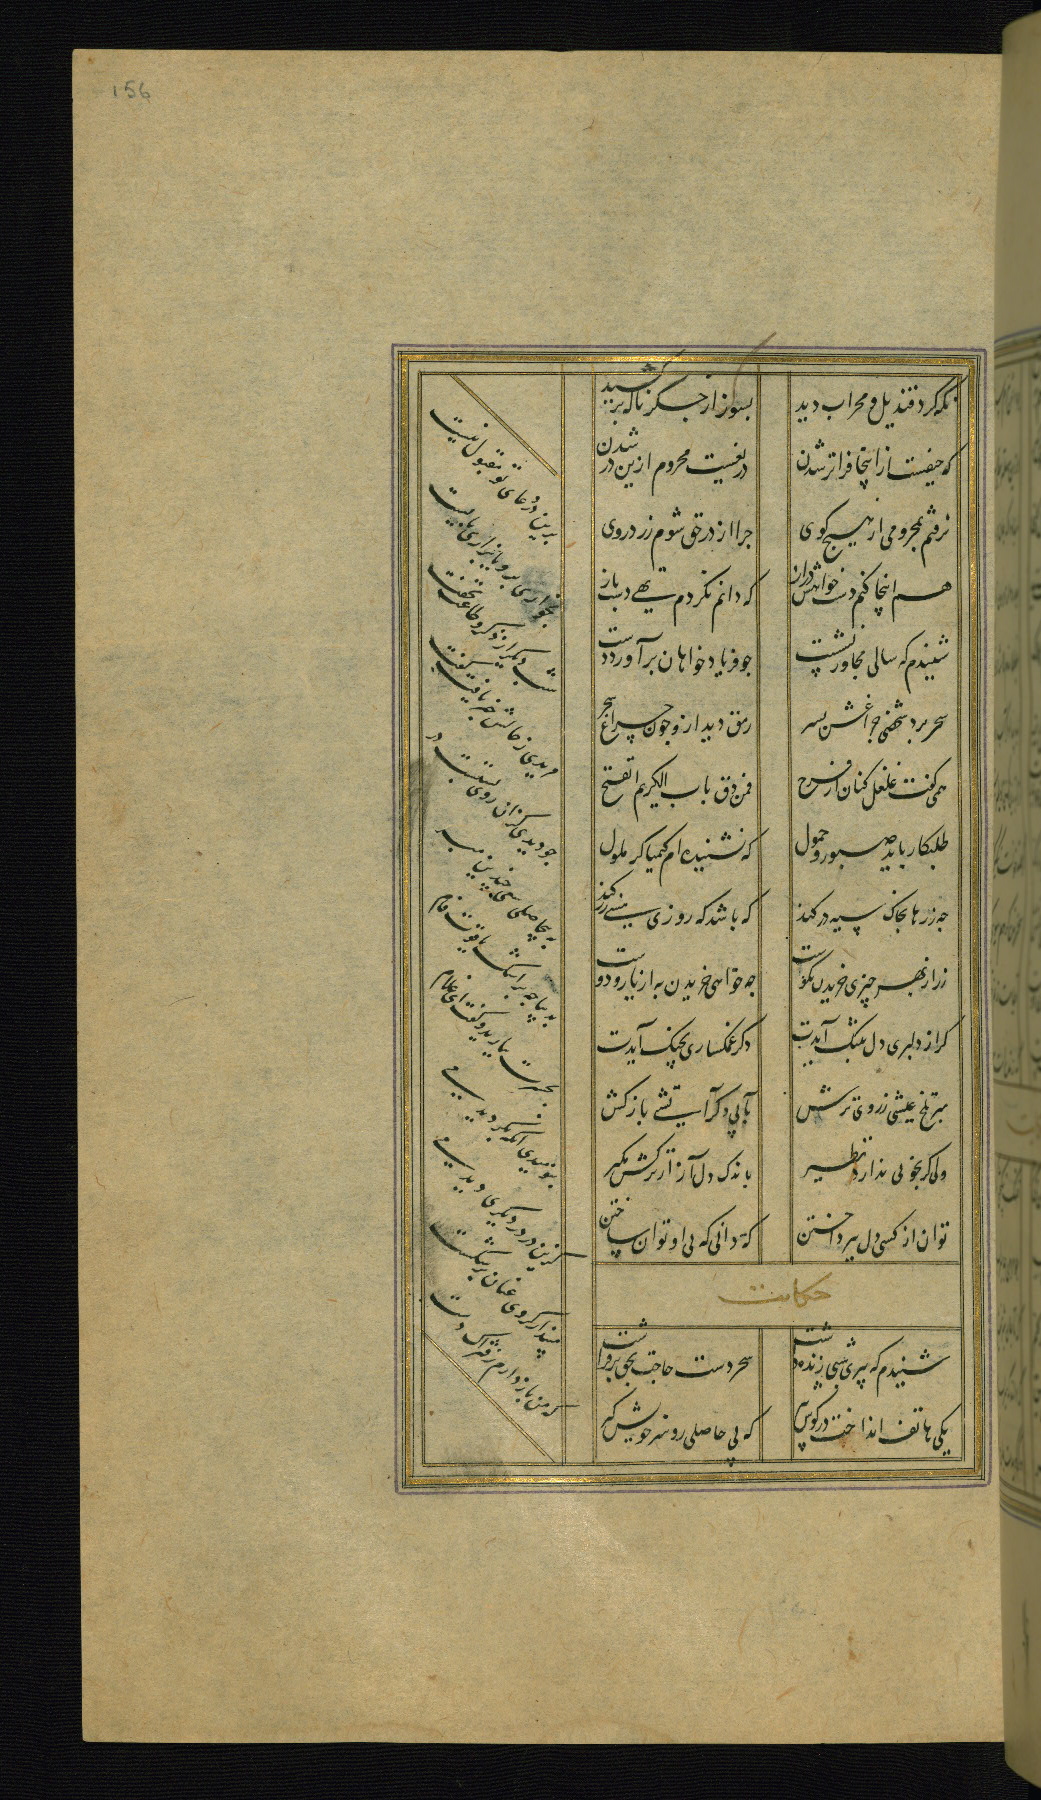 156
نکه کرد قندیل و محراب دید بسوز از جکر ناله برکشید
که حیفست از اینجا فراتر شدن دریغست محروم ازین در شدن
نرفتم بمحرومی از هیچ کوی چرا از در حق شوم زرد روی
هم اینجا کنم دست خواهش دراز که دانم نکردم تهی دست باز
شنیدم که سالی مجاور نشست جو فریاد خواهان برآورد دست
سحر برد شخصی جراغش بسر رمق دید ازو جون چراغ سحر
همی کفت غلغل کنان از فرح فمن دق باب الکریم انفتح
طلبکار باید صبور و حمول که نشنیده ام کیمیاکر ملول
جه زرها بخاک سیه در کنند که باشد که روزی مسی زر کنند
زر از بهر چیزی خریدن نکوست جه خواهی خریدن به از یار و دوست
کر از دلبری دل بتنک آیدت دکر غمکساری بچنک آیدت
مبر تلخ عیشی ز روی ترش بآبی دکر آتشی باز کش
ولی کر بخوبی ندارد نظیر باندک دل آزار ترکش مکیر
توان از کسی دل بپرداختن که دانی که بی او توان ساختن
حکایت
شنیدم که پیری شبی زنده داشت سحر دست حاجت بحق برفراشت
یکی هاتف انداخت در کوش پیر که بی حاصلی رو سر خویش کیر
برین در دعای تو مقبول نیست
بخواری برو یا بزاری بایست
شب دیکر از ذکر و طاعت نخفت
مریدی ز حالش خبر یافت کفت
جو دیدی کزان روی بستست در
به بیحاصلی سعی چندین مبر
بدیباجه بر اشک یاقوت فام
بحسرت ببارید و کفت ای غلام
بنومیدی آنکه بکردیدمی
کزین در در دیکری دیدمی
مپندار کر وی عنان برشکست
که من باز دارم ز فتراک دست